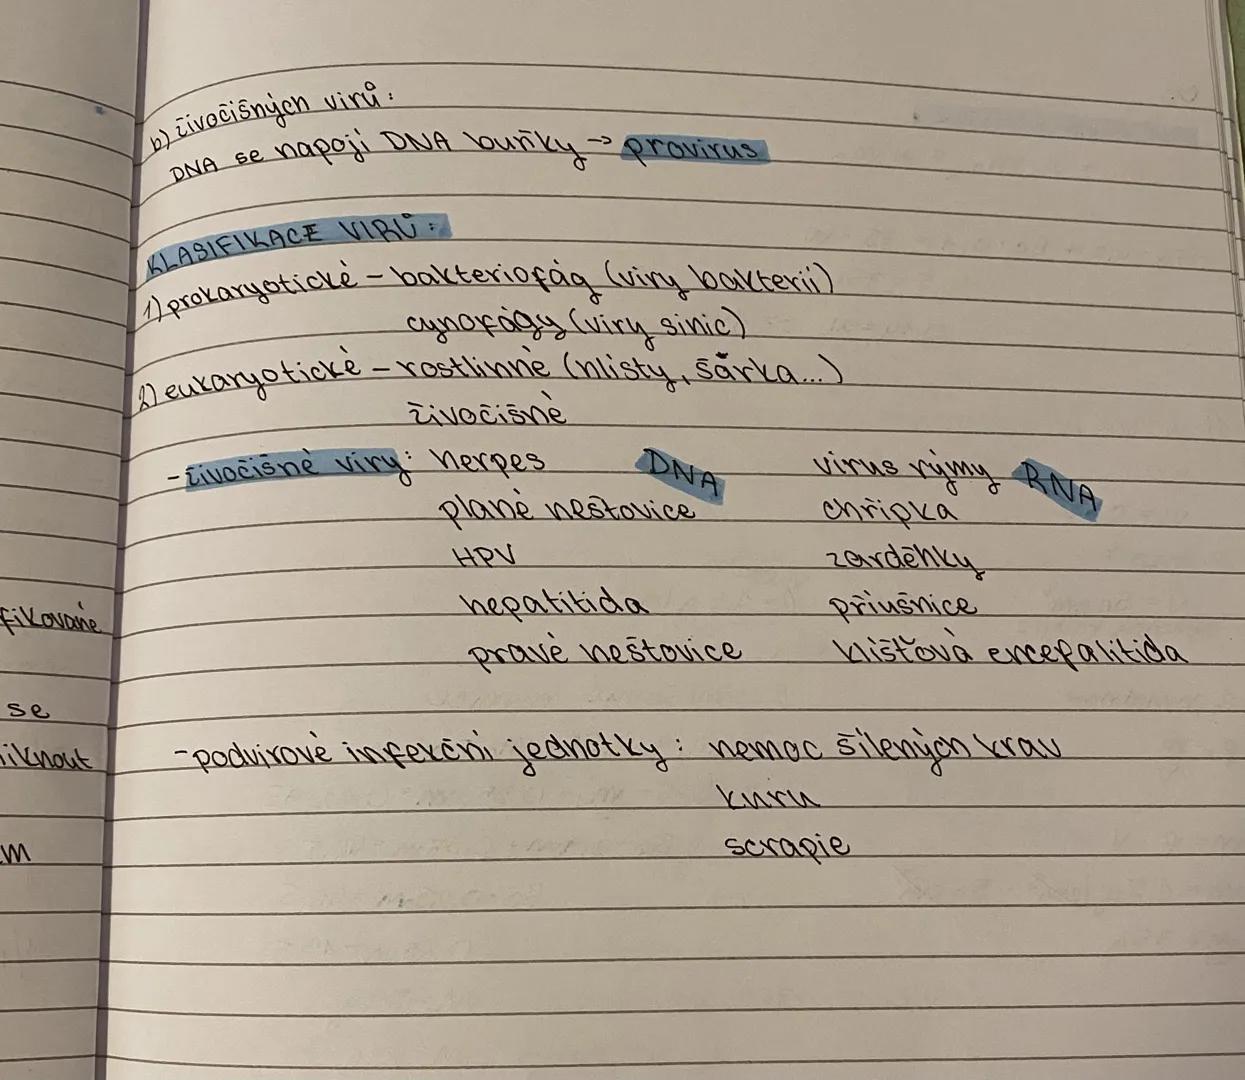 b) živočišných virů:
DNA se napojí DNA buňky → provirus
KLASIFIKACE VIRŮ:
1) prokaryotické – bakteriofág (viry bakterií)
cynofágy (viry sinic)
2) eukaryotické – rostlinné (nlisty, šárka...)
živočišné
- živočišné viry: herpes DNA virus rýmy RNA
plané neštovice chřipka
HPV zarděnky
hepatitida příušnice
pravé neštovice klišťová encefalitida
fikované
se
- podvirové infekční jednotky: nemoc šílených krav
iknout
kuru
m scrapie